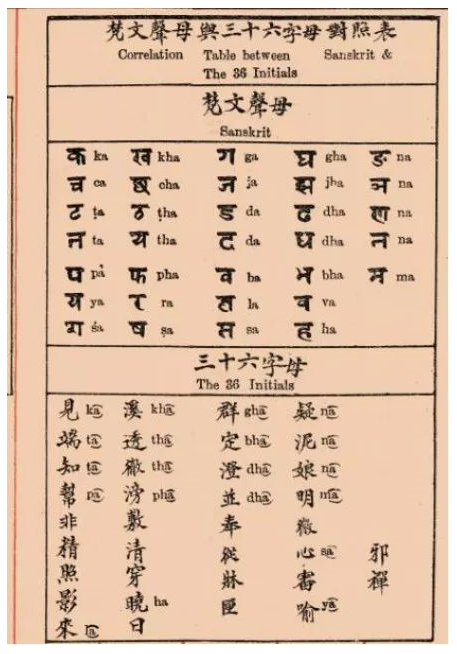 梵文聲母與三十六字母對照表
Correlation Table between Sanskrit &
The 36 Initials
梵文聲母
Sanskrit
क ka ख kha ग ga घ gha ङ na
च ca छ cha ज ja झ jha ञ na
ट ṭa ठ ṭha ड da ढ dha ण na
त ta थ tha द da ध dha न na
प pa फ pha ब ba भ bha म ma
य ya र ra ल la व va
श śa ष ṣa स sa ह ha
三十六字母
The 36 Initials
見 ka 溪 kha 群 gha 疑 na
端 ta 透 tha 定 bha 泥 na
知 ta 徹 tha 澄 dha 娘 na
幫 pa 滂 pha 並 dha 明 ma
非 敷 奉 微
精 清 從 心 sa 邪
照 穿 牀 審 禪
影 曉 ha 匣 喻 ya
來 la 日